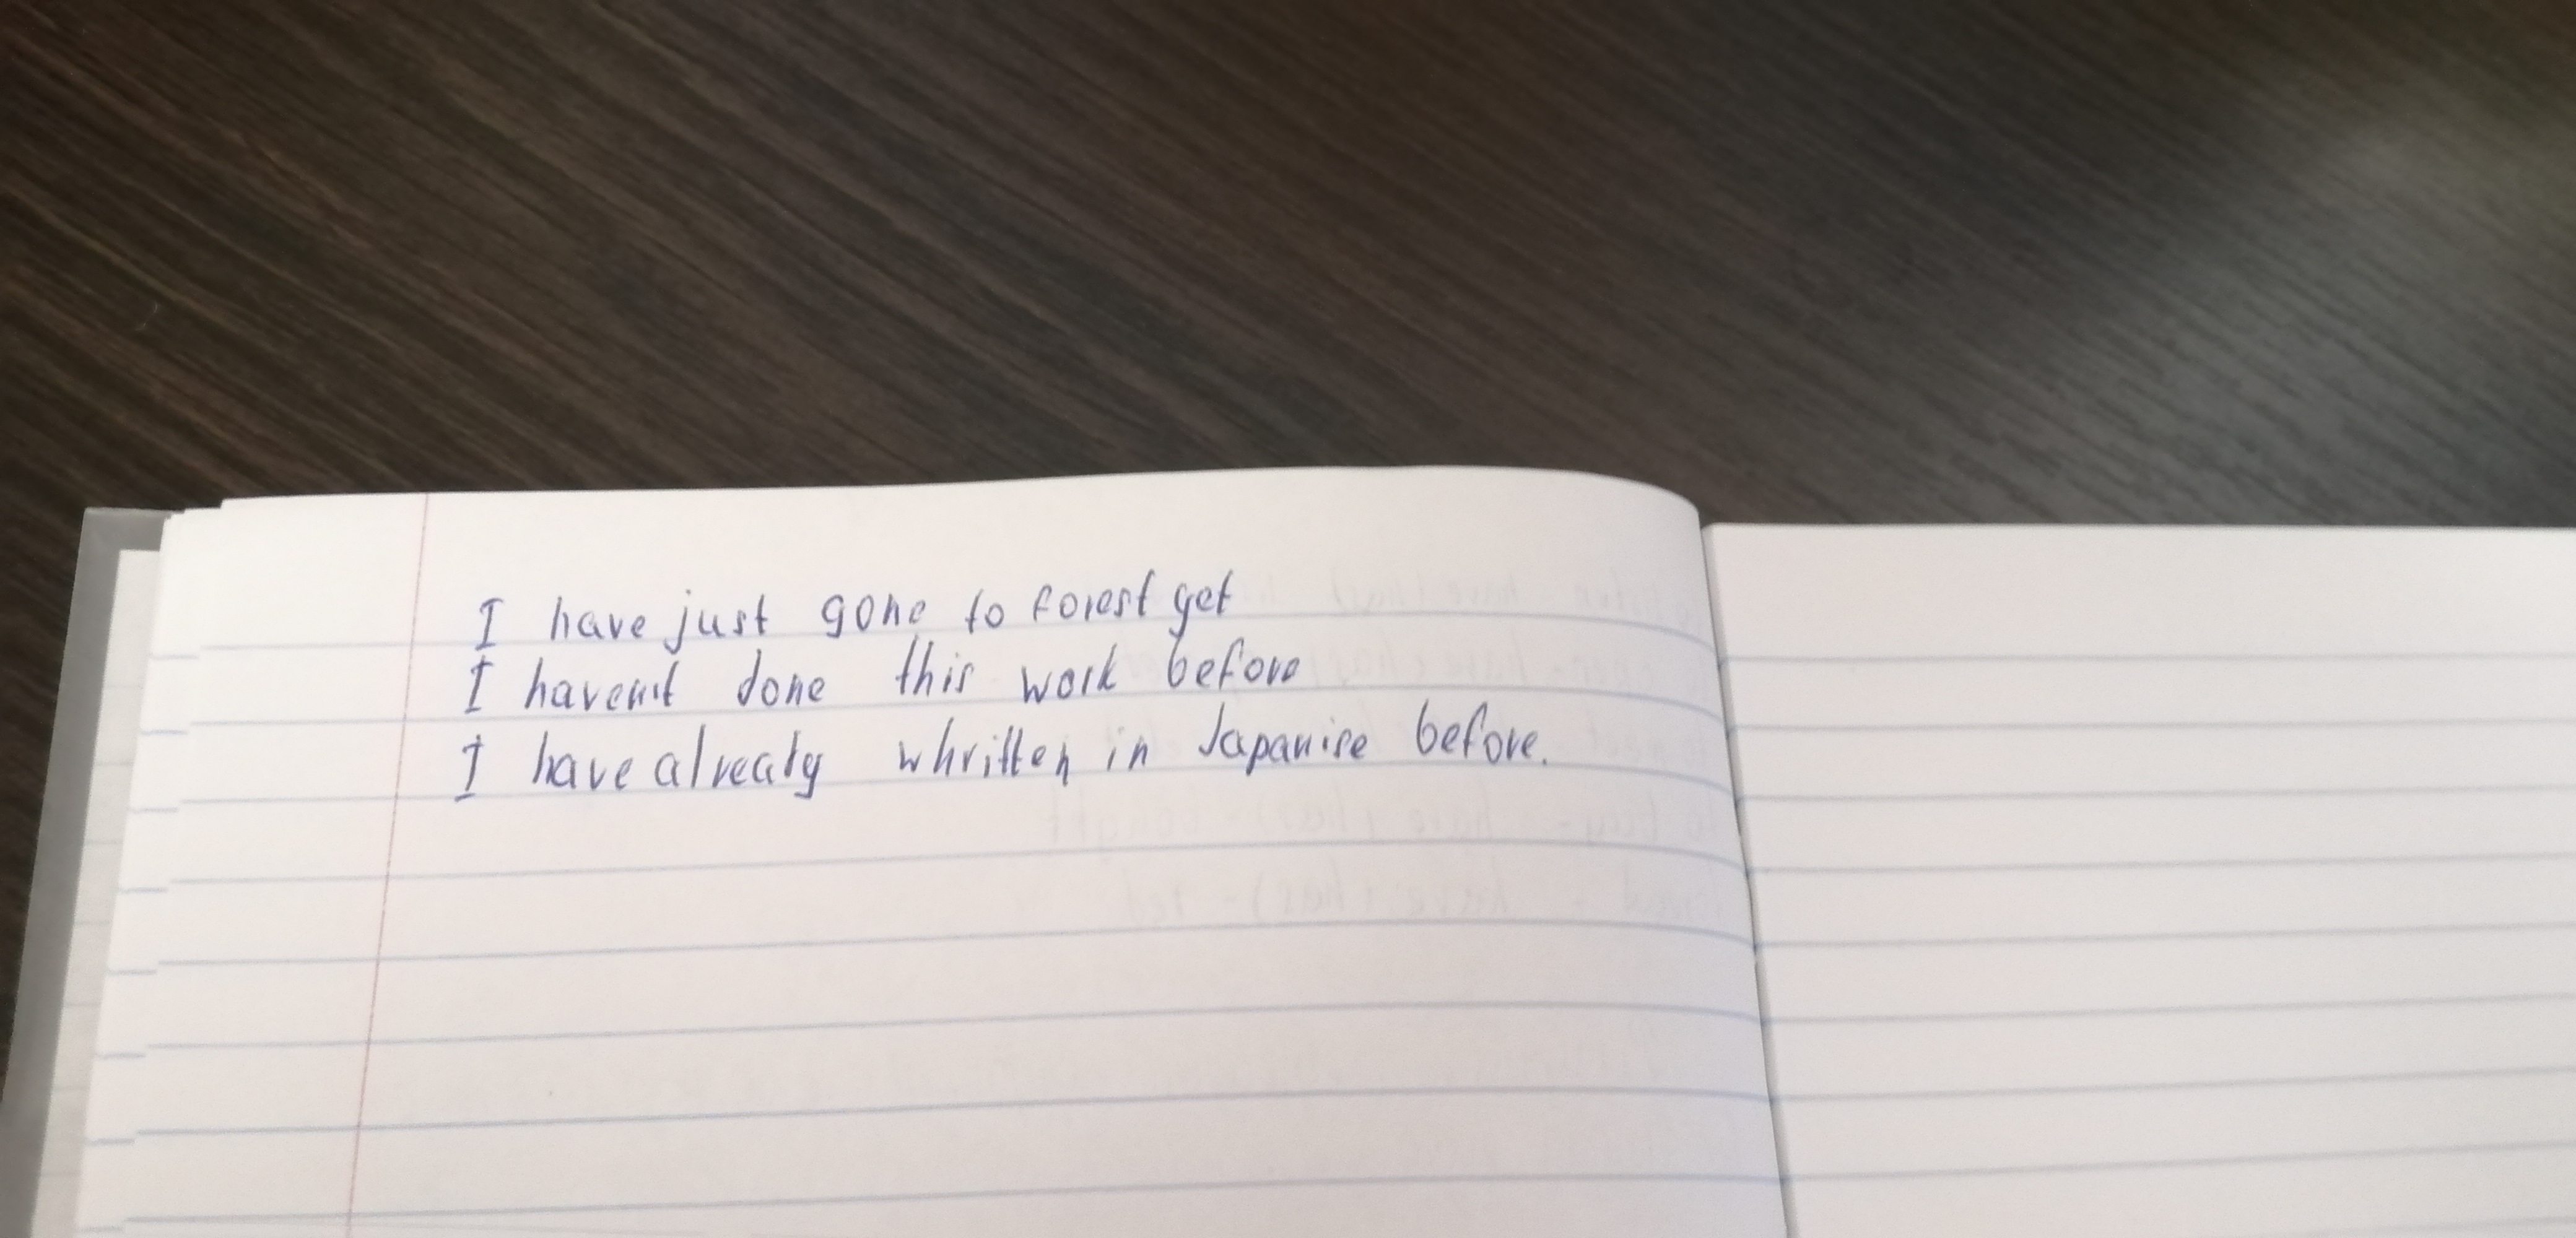 I have just gone to forest get
I haven't done this work before
I have already whritten in Japanise before.